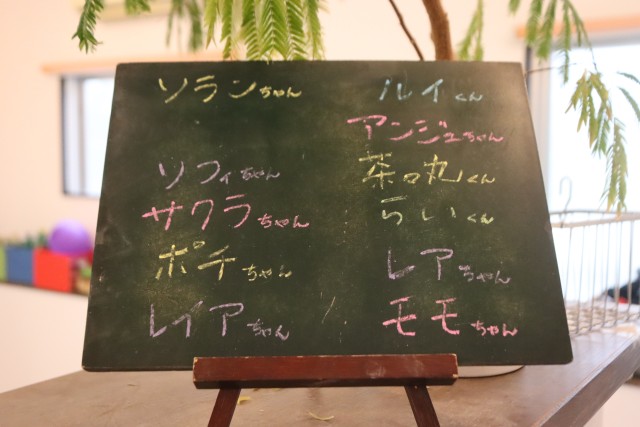 ソランちゃん
ソフィちゃん
サクラちゃん
ポチちゃん
レイアちゃん
ルイくん
アンジュちゃん
茶々丸くん
らいくん
レアちゃん
モモちゃん